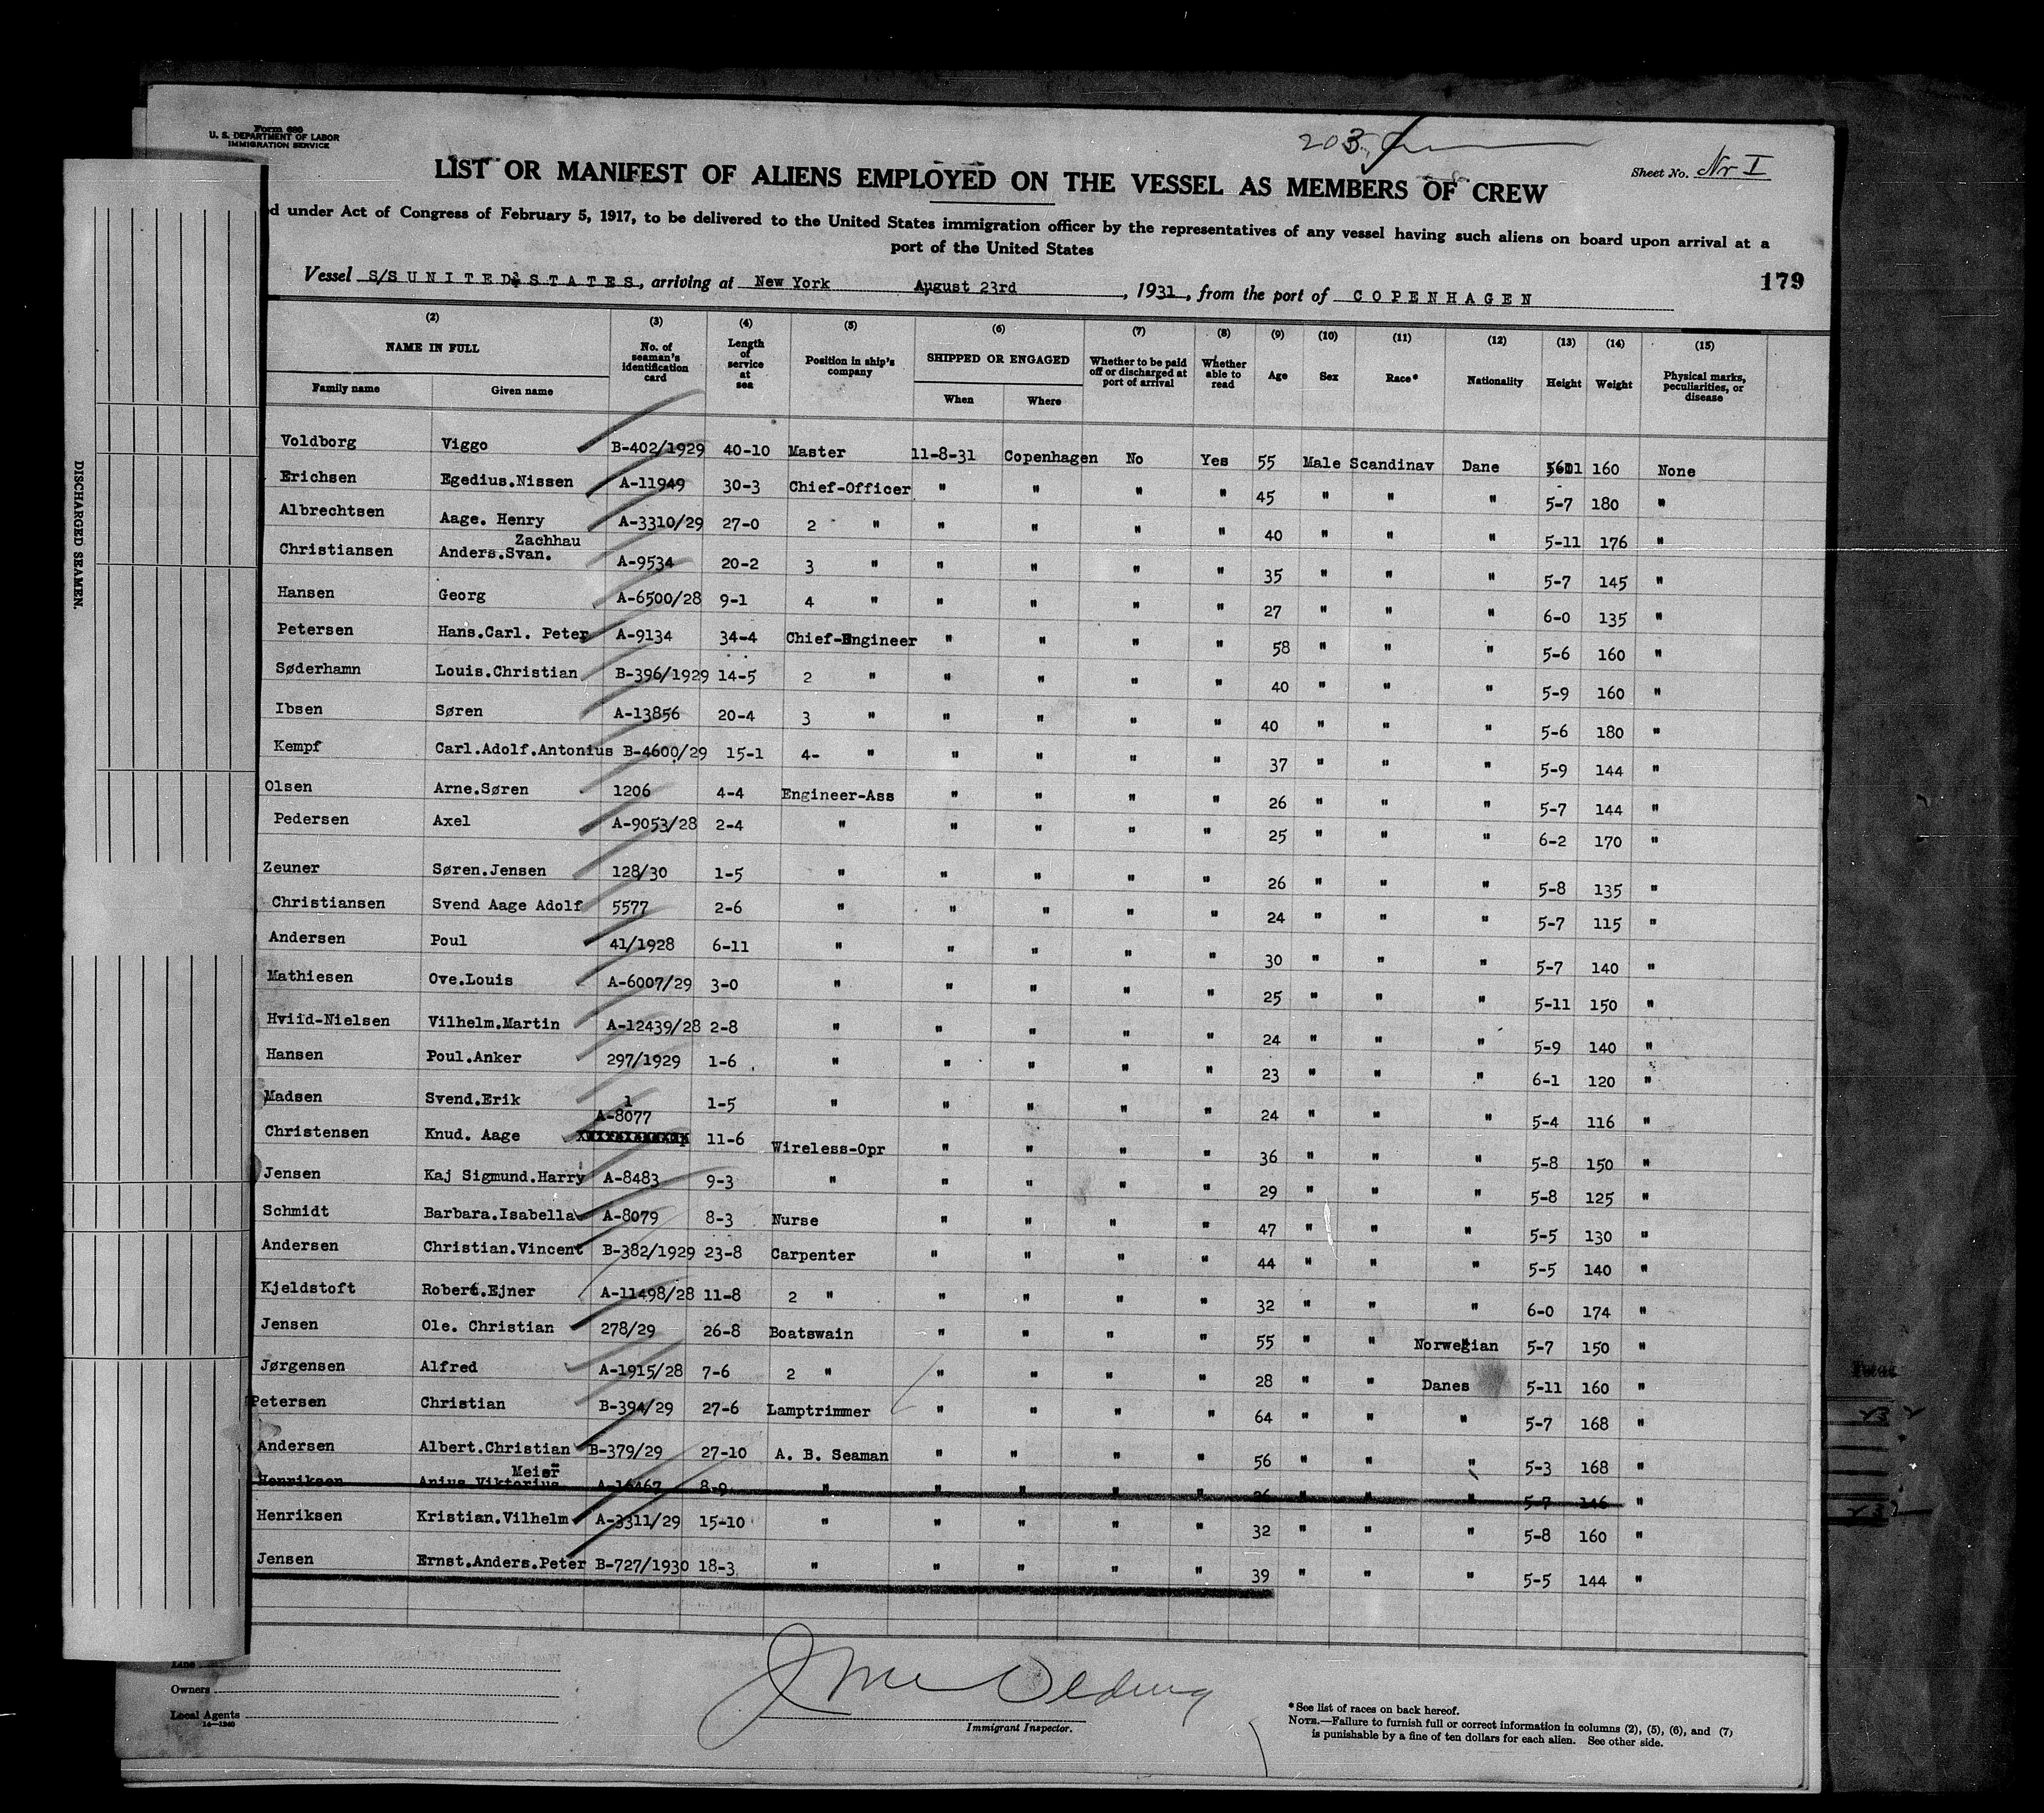 Form 680
U. S. DEPARTMENT OF LABOR
IMMIGRATION SERVICE
203
Sheet No. Nr I
LIST OR MANIFEST OF ALIENS EMPLOYED ON THE VESSEL AS MEMBERS OF CREW
d under Act of Congress of February 5, 1917, to be delivered to the United States immigration officer by the representatives of any vessel having such aliens on board upon arrival at a
port of the United States
Vessel S/S UNITED STATES, arriving at New York August 23rd, 1931, from the port of COPENHAGEN
179
(2) (3) (4) (5) (6) (7) (8) (9) (10) (11) (12) (13) (14) (15)
NAME IN FULL
Family name Given name
No. of seaman's identification card
Length of service at sea
Position in ship's company
SHIPPED OR ENGAGED
When Where
Whether to be paid off or discharged at port of arrival
Whether able to read
Age Sex Race* Nationality Height Weight
Physical marks, peculiarities, or disease
Voldborg Viggo B-402/1929 40-10 Master 11-8-31 Copenhagen No Yes 55 Male Scandinav Dane 160 None
Erichsen Egedius.Nissen A-11949 30-3 Chief-Officer " " " " 45 " " " 5-7 180 "
Albrechtsen Aage. Henry A-3310/29 27-0 2 " " " " " 40 " " " 5-11 176 "
Zachhau
Christiansen Anders.Svan. A-9534 20-2 3 " " " " " 35 " " " 5-7 145 "
Hansen Georg A-6500/28 9-1 4 " " " " " 27 " " " 6-0 135 "
Petersen Hans.Carl. Peter A-9134 34-4 Chief-Engineer " " " " 58 " " " 5-6 160 "
Søderhamn Louis.Christian B-396/1929 14-5 2 " " " " " 40 " " " 5-9 160 "
Ibsen Søren A-13856 20-4 3 " " " " " 40 " " " 5-6 180 "
Kempf Carl.Adolf.Antonius B-4600/29 15-1 4- " " " " " 37 " " " 5-9 144 "
Olsen Arne.Søren 1206 4-4 Engineer-Ass " " " " 26 " " " 5-7 144 "
Pedersen Axel A-9053/28 2-4 " " " " " 25 " " " 6-2 170 "
Zeuner Søren.Jensen 128/30 1-5 " " " " " 26 " " " 5-8 135 "
Christiansen Svend Aage Adolf 5577 2-6 " " " " " 24 " " " 5-7 115 "
Andersen Poul 41/1928 6-11 " " " " " 30 " " " 5-7 140 "
Mathiesen Ove.Louis A-6007/29 3-0 " " " " " 25 " " " 5-11 150 "
Hviid-Nielsen Vilhelm.Martin A-12439/28 2-8 " " " " " 24 " " " 5-9 140 "
Hansen Poul.Anker 297/1929 1-6 " " " " " 23 " " " 6-1 120 "
Madsen Svend.Erik 1 1-5 " " " " " 24 " " " 5-4 116 "
A-8077
Christensen Knud. Aage 11-6 Wireless-Opr " " " " 36 " " " 5-8 150 "
Jensen Kaj Sigmund.Harry A-8483 9-3 " " " " " 29 " " " 5-8 125 "
Schmidt Barbara.Isabella A-8079 8-3 Nurse " " " " 47 " " " 5-5 130 "
Andersen Christian.Vincent B-382/1929 23-8 Carpenter " " " " 44 " " " 5-5 140 "
Kjeldstoft Robert.Ejner A-11498/28 11-8 2 " " " " " 32 " " " 6-0 174 "
Jensen Ole. Christian 278/29 26-8 Boatswain " " " " 55 " " Norwegian 5-7 150 "
Jørgensen Alfred A-1915/28 7-6 2 " " " " " 28 " " Danes 5-11 160 "
Petersen Christian B-394/29 27-6 Lamptrimmer " " " " 64 " " " 5-7 168 "
Andersen Albert.Christian B-379/29 27-10 A. B. Seaman " " " " 56 " " " 5-3 168 "
Meier
Henriksen Anius.Viktorius A-16467 8-9 " " " " " 26 " " " 5-7 146 "
Henriksen Kristian.Vilhelm A-3311/29 15-10 " " " " " 32 " " " 5-8 160 "
Jensen Ernst.Anders.Peter B-727/1930 18-3 " " " " " 39 " " " 5-5 144 "
DISCHARGED SEAMEN.
Line
Owners
Local Agents
14—1240
Immigrant Inspector.
*See list of races on back hereof.
NOTE.—Failure to furnish full or correct information in columns (2), (5), (6), and (7)
is punishable by a fine of ten dollars for each alien. See other side.